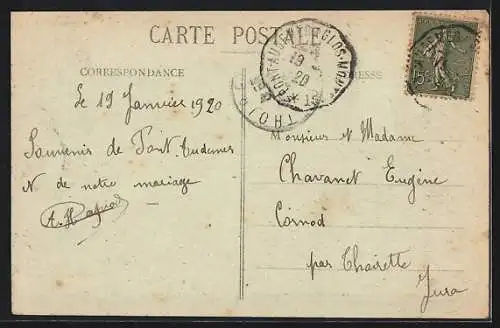 CARTE POSTALE
CORRESPONDANCE
Le 19 Janvier 1920
Souvenir de Pont Audemer
N de notre mariage
PONT-AUDEMER
19
20
THOIRE
15c
Monsieur et Madame
Chavanet Eugène
Cornod
par Thoirette
Jura